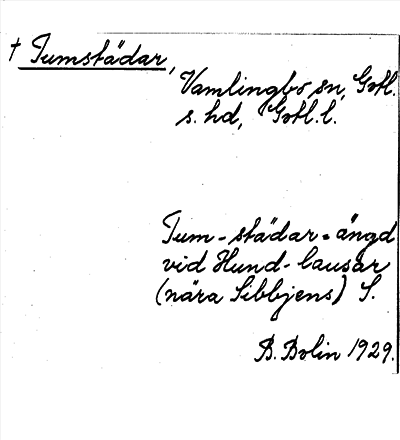 † Tumstädar,
Vamlingbo sn, Gotl.
s. hd, Gotl. l.
Tum-städar-ängd
vid Hund-lausar
(nära Sibbjens) S.
B. Bolin 1929.